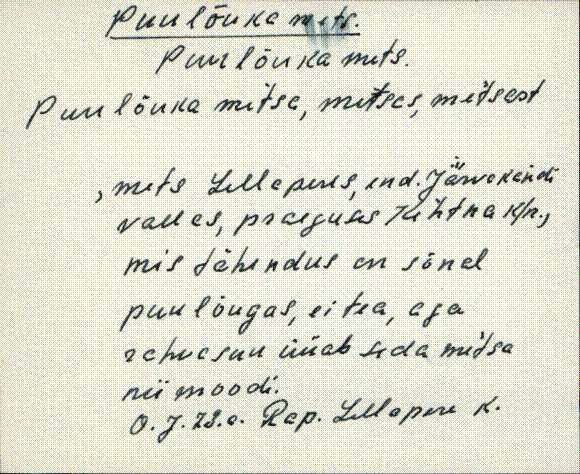 Puulõuka mets.
Puulõuka mets.
Puulõuka mětsa, mětsas, mětsast
, mets Lellapere, end. Järvakandi
vallas, praeguses Kehtna k/n.,
mis tähendus on sõnal
puulõugas, ei tea, aga
rahvasuu üüab seda mětsa
nii moodi.
O. J. 78.a. Rap. Lellapere k.